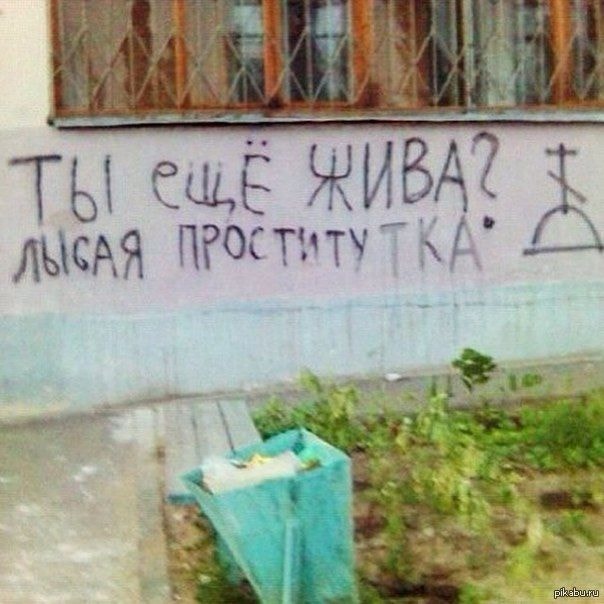 ТЫ ЕЩЁ ЖИВА?
ЛЫСАЯ ПРОСТИТУТКА
pikabu.ru